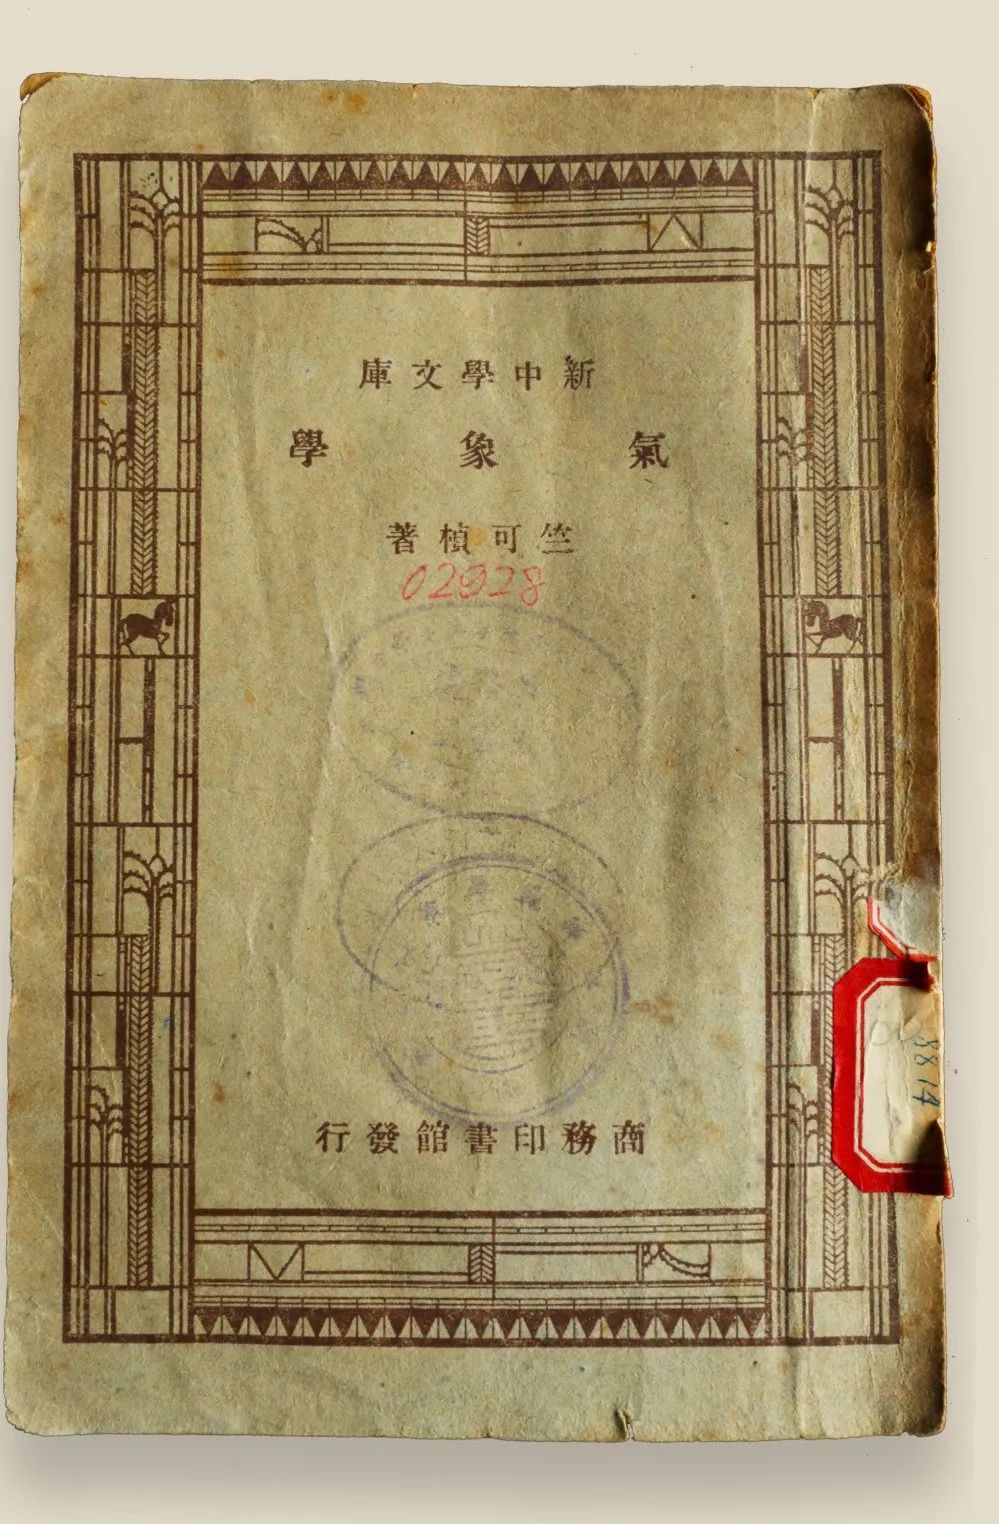 新中學文庫
氣象學
竺可楨著
02928
商務印書館發行
8814